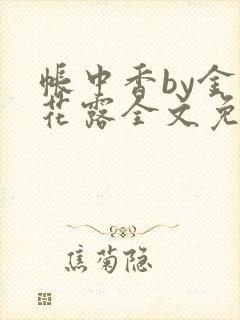 帐中香by金
花露全文免
焦菊隐